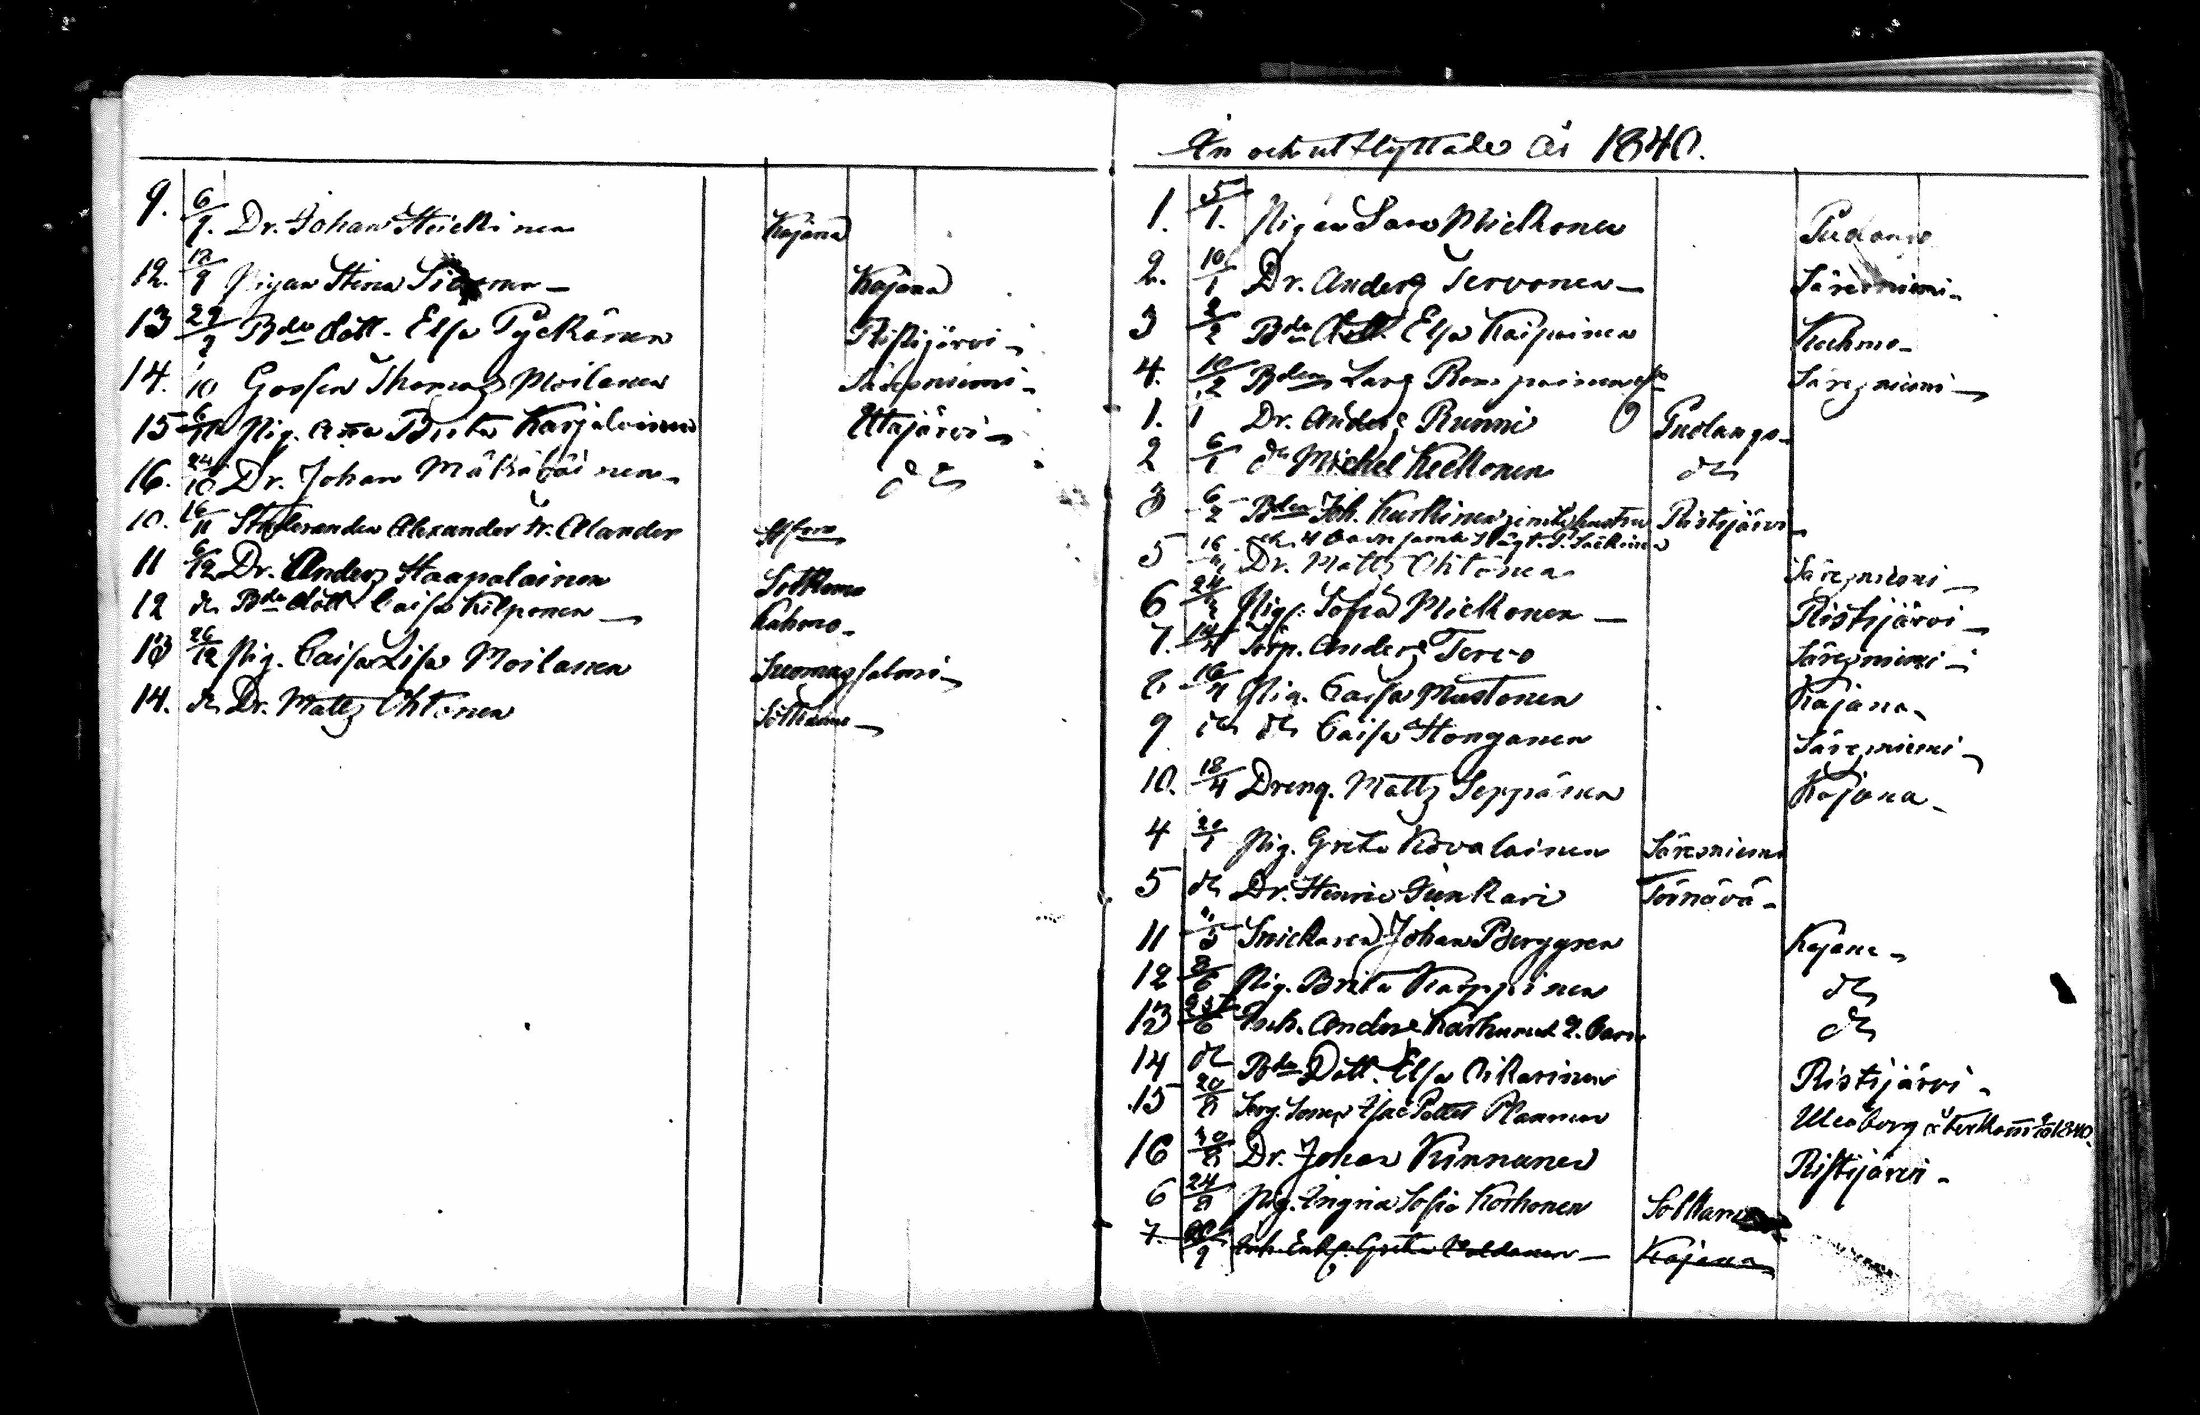 9. 6/9. Dr. Johan Heickinen Kajana
12. 12/9 Pigan Stina Kajana
13 29/9 Bde Dott. Elsa Pyckönen Ristijärvi
14. 1/10 Gossen Thomas Moilanen Säresniemi
15 6/10 Pig. Anna Brita Karjalainen Utajärvi
16. 24/10 Dr. Johan Mäkäräinen do
10. 16/11 Studeranden Alexander W. Alander
11 6/12 Dr. Anders Haapalainen Sotkamo
12 do Bde Dott Caisa Kilponen Kuhmo
13 26/12 Pig. Caisa Lisa Moilanen Suomussalmi
14. do Dr. Matts Ohtonen Sotkamo
In och utflyttade år 1840.
1. 5/1. Pigan Sara Mickonen Pudasjo
2. 10/1 Dr. Anders Tervonen Säresniemi
3 2/2 Bde Dott Elsa Kaipainen Kuhmo
4. 10/2 Bden Lars Romppainen Säresniemi
1. 1 Dr. Anders Runni Pudasjo
2 6/1 do Michel Keckonen do
3 6/2 Bden Joh. Kurkinen jemte hustru Ristijärvi
och 4 Barn samt
5 16 Dr. Matts Ohtonen Säresniemi
6 24/3 Pig: Sofia Mickonen Ristijärvi
7. 14/4 Torp. Anders Tervo Säresniemi
8 16/4 Pig. Caisa Mustonen Kajana
9 do do Caisa Honganen Säresniemi
10. 18/4 Dreng. Matts Seppänen Kajana
4 20/1 Pig. Greta Kovalainen Säresniemi
5 do Dr. Henric Junkari Törnävä
11 /5 Snickaren Johan Berggren Kajana
12 8/6 Pig. Brita Karppinen do
13 25/6 Inh. Anders Karhunen 2. Barn do
14 do Bde Dott. Elsa Oikarinen Ristijärvi
15 20/8 Serg. Sonen Isac Petter Planman Uleåborg återkom 1840.
16 30/8 Dr. Johan Kinnunen Ristijärvi
6 24/8 Pig. Ingrid Sofia Korhonen Sotkamo
7. /9 Greta Kajana